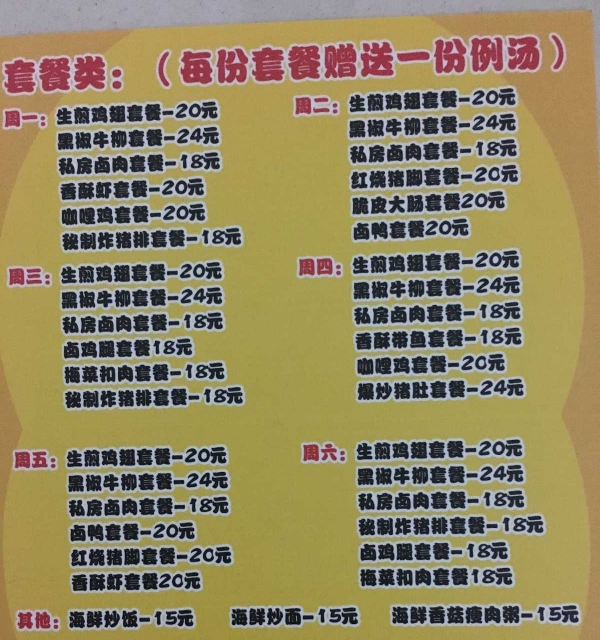 套餐类：（每份套餐赠送一份例汤）
周一：生煎鸡翅套餐-20元
黑椒牛柳套餐-24元
私房卤肉套餐-18元
香酥虾套餐-20元
咖哩鸡套餐-20元
秘制炸猪排套餐-18元
周二：生煎鸡翅套餐-20元
黑椒牛柳套餐-24元
私房卤肉套餐-18元
红烧猪脚套餐-20元
脆皮大肠套餐20元
卤鸭套餐20元
周三：生煎鸡翅套餐-20元
黑椒牛柳套餐-24元
私房卤肉套餐-18元
卤鸡腿套餐18元
梅菜扣肉套餐-18元
秘制炸猪排套餐-18元
周四：生煎鸡翅套餐-20元
黑椒牛柳套餐-24元
私房卤肉套餐-18元
香酥带鱼套餐-18元
咖哩鸡套餐-20元
爆炒猪肚套餐-24元
周五：生煎鸡翅套餐-20元
黑椒牛柳套餐-24元
私房卤肉套餐-18元
卤鸭套餐-20元
红烧猪脚套餐-20元
香酥虾套餐20元
周六：生煎鸡翅套餐-20元
黑椒牛柳套餐-24元
私房卤肉套餐-18元
秘制炸猪排套餐-18元
卤鸡腿套餐-18元
梅菜扣肉套餐18元
其他：海鲜炒饭-15元 海鲜炒面-15元 海鲜香菇瘦肉粥-15元